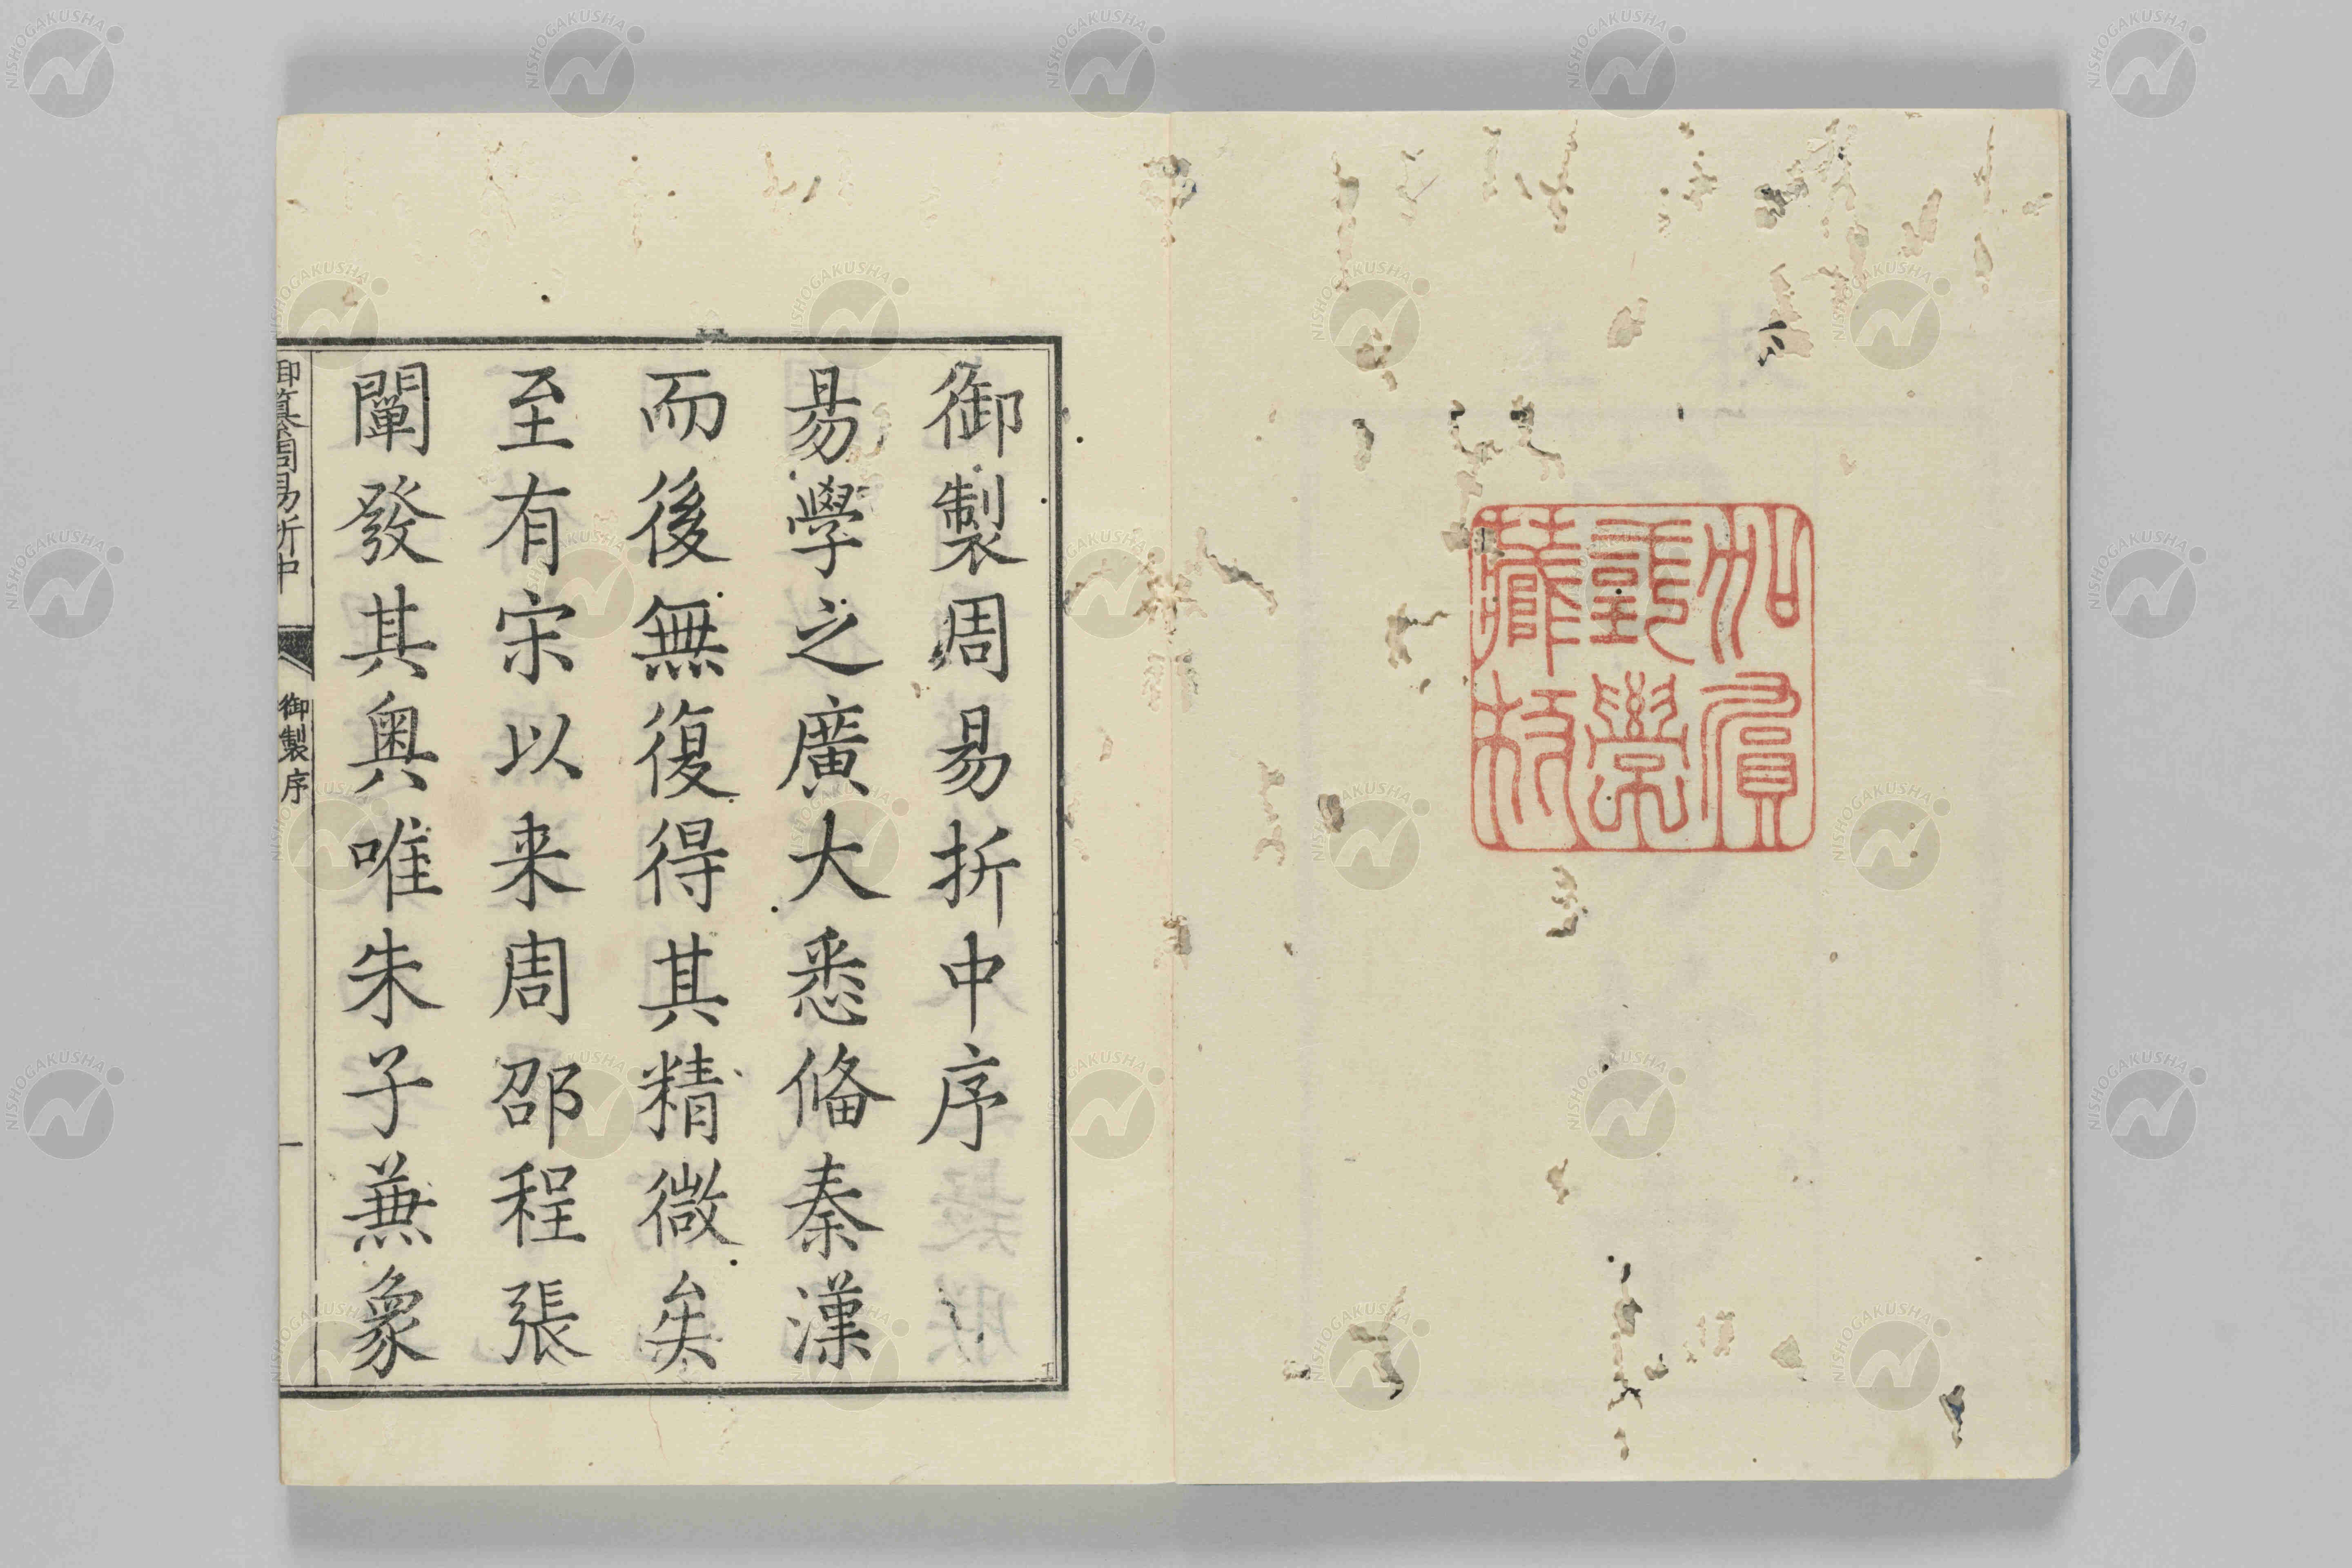 加賀
野學
藏校
御製周易折中序
易學之廣大悉俻秦漢
而後無復得其精微矣
至有宋以来周邵程張
闡發其奧唯朱子蒹象
御纂周易折中
御製序
一
NISHOGAKUSHA